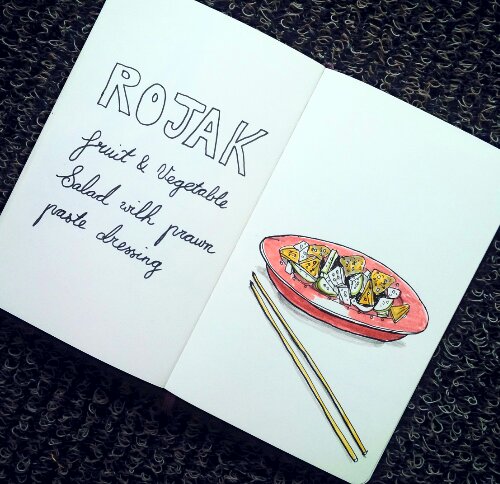 ROJAK
fruit & Vegetable
Salad with prawn
paste dressing